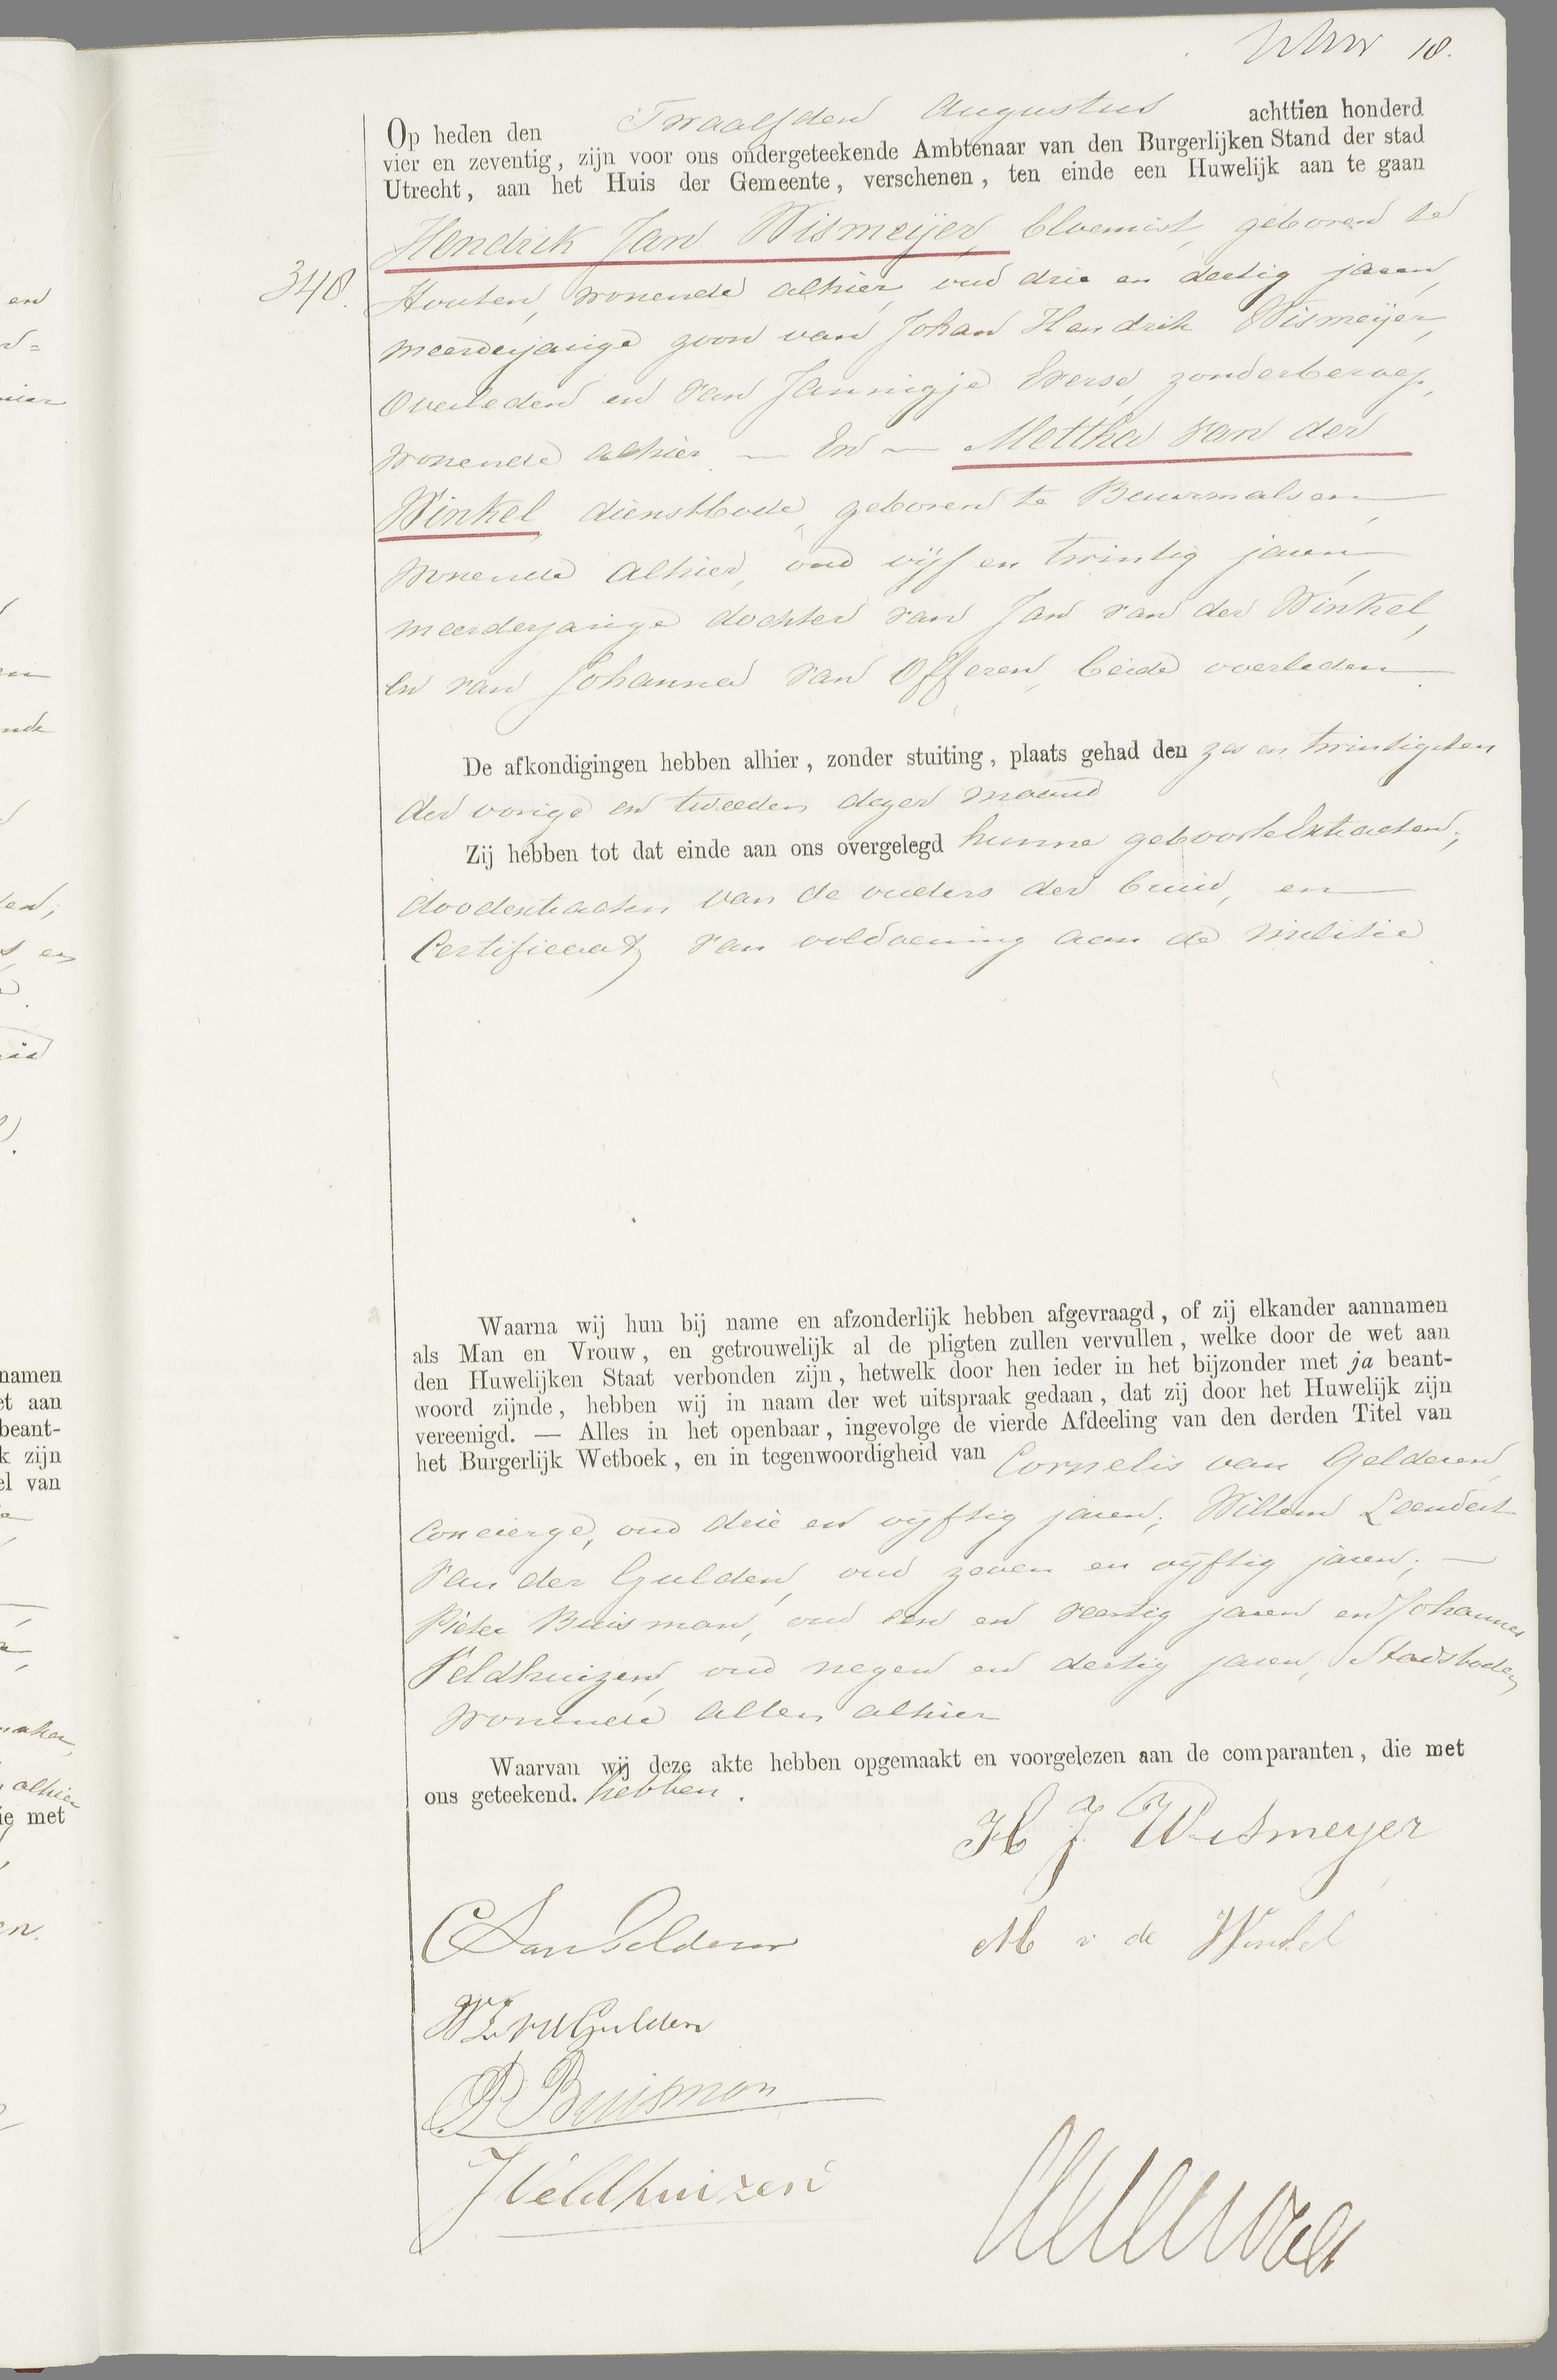 18.
Op heden den Twaalfden Augustus achttien honderd
vier en zeventig, zijn voor ons ondergeteekende Ambtenaar van den Burgerlijken Stand der stad
Utrecht, aan het Huis der Gemeente, verschenen, ten einde een Huwelijk aan te gaan
Hendrik Jan Wismeijer, bloemist, geboren te
348. Houten, wonende alhier, oud drie en dertig jaren,
meerderjarige zoon van Johan Hendrik Wismeijer,
overleden en van Jannigje Everse, zonder beroep,
wonende alhier — En — Mettha van der
Winkel dienstbode, geboren te Buurmalsen,
wonende alhier, oud vijf en twintig jaren,
meerderjarige dochter van Jan van der Winkel,
en van Johanna van Offeren, beide overleden
De afkondigingen hebben alhier, zonder stuiting, plaats gehad den zes en twintigsten
der vorige en tweeden dezer maand
Zij hebben tot dat einde aan ons overgelegd hunne geboorte Extracten;
doodextracten van de ouders der bruid, en
Certificaat van voldoening aan de militie
Waarna wij hun bij name en afzonderlijk hebben afgevraagd, of zij elkander aannamen
als Man en Vrouw, en getrouwelijk al de pligten zullen vervullen, welke door de wet aan
den Huwelijken Staat verbonden zijn, hetwelk door hen ieder in het bijzonder met ja beant-
woord zijnde, hebben wij in naam der wet uitspraak gedaan, dat zij door het Huwelijk zijn
vereenigd. — Alles in het openbaar, ingevolge de vierde Afdeeling van den derden Titel van
het Burgerlijk Wetboek, en in tegenwoordigheid van Cornelis van Gelderen,
Concierge, oud drie en vijftig jaren; Willem Leendert
van der Gulden, oud zeven en vijftig jaren; —
Pieter Buisman, oud een en veertig jaren en Johannes
Veldhuizen, oud negen en dertig jaren, Stadsboden,
wonende allen alhier
Waarvan wij deze akte hebben opgemaakt en voorgelezen aan de comparanten, die met
ons geteekend. hebben.
H J Wismeyer
C van Gelderen
M v de Winkel
W L v d Gulden
P Buisman
J Veldhuizen